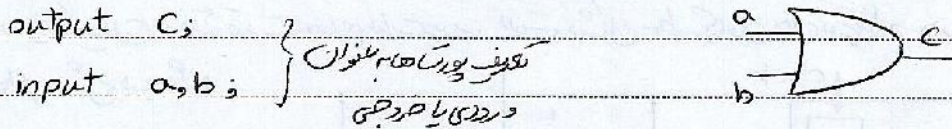 output c;
input a,b;
تعریف پورت‌ها به عنوان
ورودی یا خروجی
a
b
c